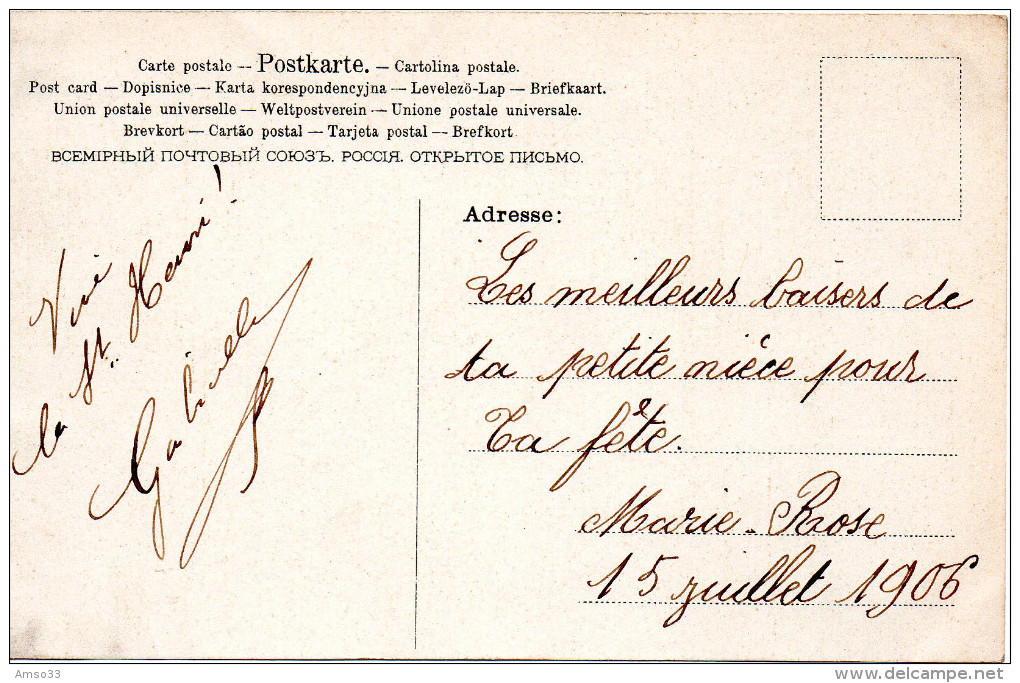 Carte postale -- Postkarte. -- Cartolina postale.
Post card -- Dopisnice -- Karta korespondencyjna -- Levelező-Lap -- Briefkaart.
Union postale universelle -- Weltpostverein -- Unione postale universale.
Brevkort -- Cartão postal -- Tarjeta postal -- Brefkort
ВСЕМІРНЫЙ ПОЧТОВЫЙ СОЮЗЪ. РОССІЯ. ОТКРЫТОЕ ПИСЬМО.
Vive
la St. Henri!
Gabrielle
Adresse:
Les meilleurs baisers de
ta petite nièce pour
Ta fête.
Marie-Rose
15 juillet 1906
Amso33
www.delcampe.net